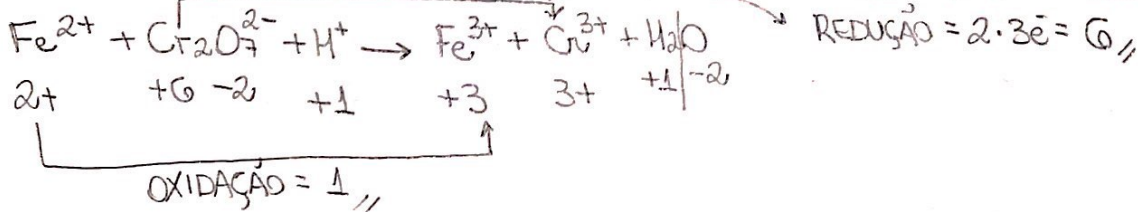 Fe²⁺ + Cr₂O₇²⁻ + H⁺ → Fe³⁺ + Cr³⁺ + H₂O REDUÇÃO = 2·3ē = 6 //
2+ +6 -2 +1 +3 3+ +1 | -2
OXIDAÇÃO = 1 //